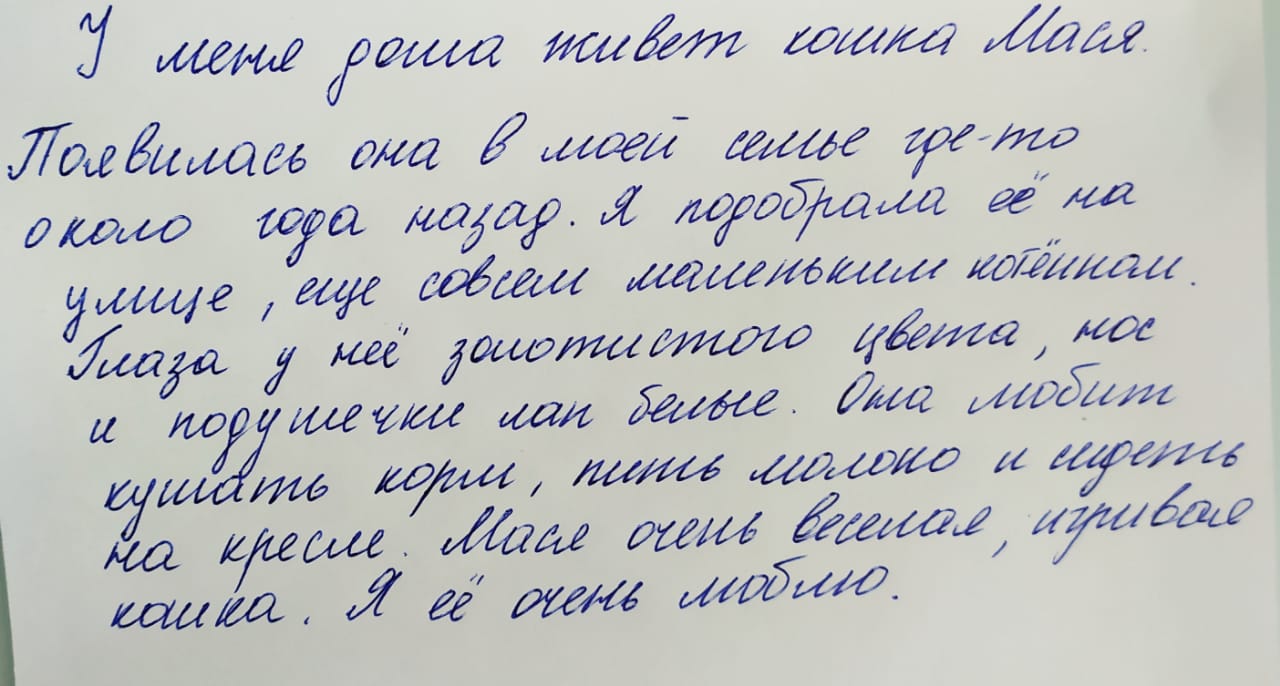 У меня дома живет кошка Мася.
Появилась она в моей семье где-то
около года назад. Я подобрала её на
улице, еще совсем маленьким котёнком.
Глаза у неё золотистого цвета, нос
и подушечки лап белые. Она любит
кушать корм, пить молоко и сидеть
на кресле. Мася очень веселая, игривая
кошка. Я её очень люблю.